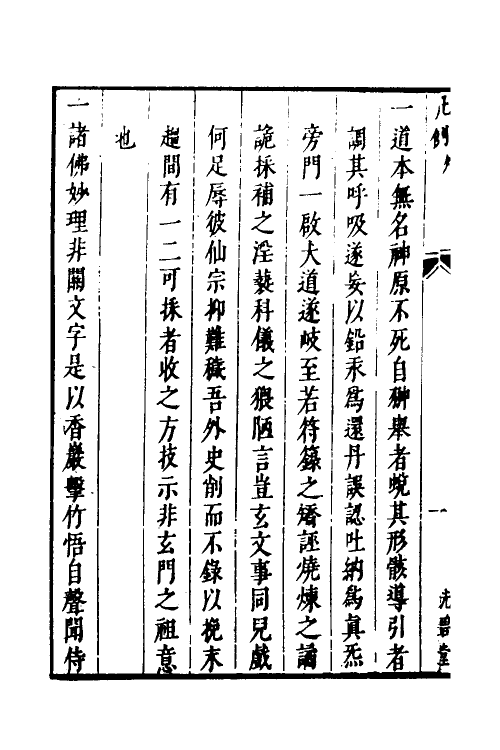 凡例
一
一道本無名神原不死自翀舉者蛻其形骸導引者
調其呼吸遂妄以鉛汞為還丹誤認吐納為真炁
旁門一啟大道遂岐至若符籙之矯誣燒煉之譎
詭採補之淫褻科儀之猥陋言豈玄文事同兒戲
何足辱彼仙宗抑難穢吾外史削而不錄以挽末
趨間有一二可採者收之方技示非玄門之祖意
也
一諸佛妙理非關文字是以香巖擊竹悟自聲聞侍